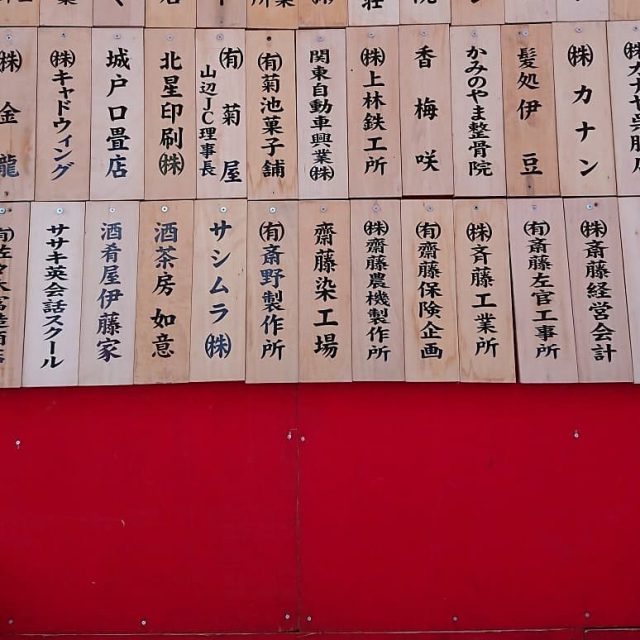 ㈱カナン
髪処伊豆
かみのやま整骨院
香梅咲
㈱上林鉄工所
関東自動車興業㈱
㈲菊池菓子舗
㈲菊屋
山辺JC理事長
北星印刷㈱
城戸口畳店
㈱キャドウィング
㈱金龍
㈱斎藤経営会計
㈲斎藤左官工事所
㈱斉藤工業所
㈲齋藤保険企画
㈱齋藤農機製作所
齋藤染工場
㈲斎野製作所
サシムラ㈱
酒茶房如意
酒肴屋伊藤家
ササキ英会話スクール